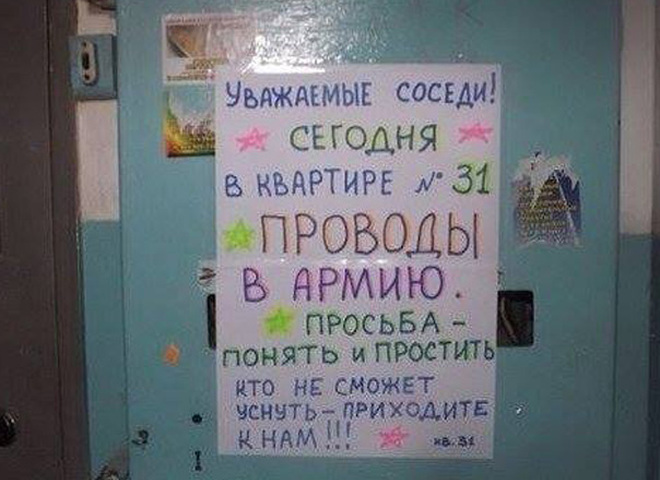 УВАЖАЕМЫЕ СОСЕДИ!
СЕГОДНЯ
В КВАРТИРЕ № 31
ПРОВОДЫ
В АРМИЮ.
ПРОСЬБА -
ПОНЯТЬ И ПРОСТИТЬ
КТО НЕ СМОЖЕТ
УСНУТЬ - ПРИХОДИТЕ
К НАМ!!! КВ. 31